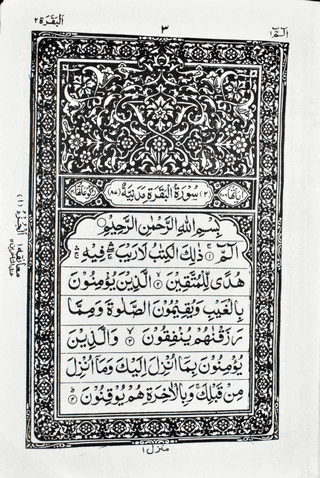 الٓمّٓ ١
٣
اَلْبَقَرَة ٢
(٢) سُوْرَةُ الْبَقَرَةِ مَدَنِيَّةٌ (٨٧)
بِسْمِ اللّٰهِ الرَّحْمٰنِ الرَّحِيْمِ
الٓمّٓ ۚ ١ ذٰلِكَ الْكِتٰبُ لَا رَيْبَ ۛ فِيْهِ ۛ
هُدًى لِّلْمُتَّقِيْنَ ٢ الَّذِيْنَ يُؤْمِنُوْنَ
بِالْغَيْبِ وَيُقِيْمُوْنَ الصَّلٰوةَ وَمِمَّا
رَزَقْنٰهُمْ يُنْفِقُوْنَ ٣ وَالَّذِيْنَ
يُؤْمِنُوْنَ بِمَآ اُنْزِلَ اِلَيْكَ وَمَآ اُنْزِلَ
مِنْ قَبْلِكَ ۚ وَبِالْاٰخِرَةِ هُمْ يُوْقِنُوْنَ ٤
منزل ١
معانقة ١